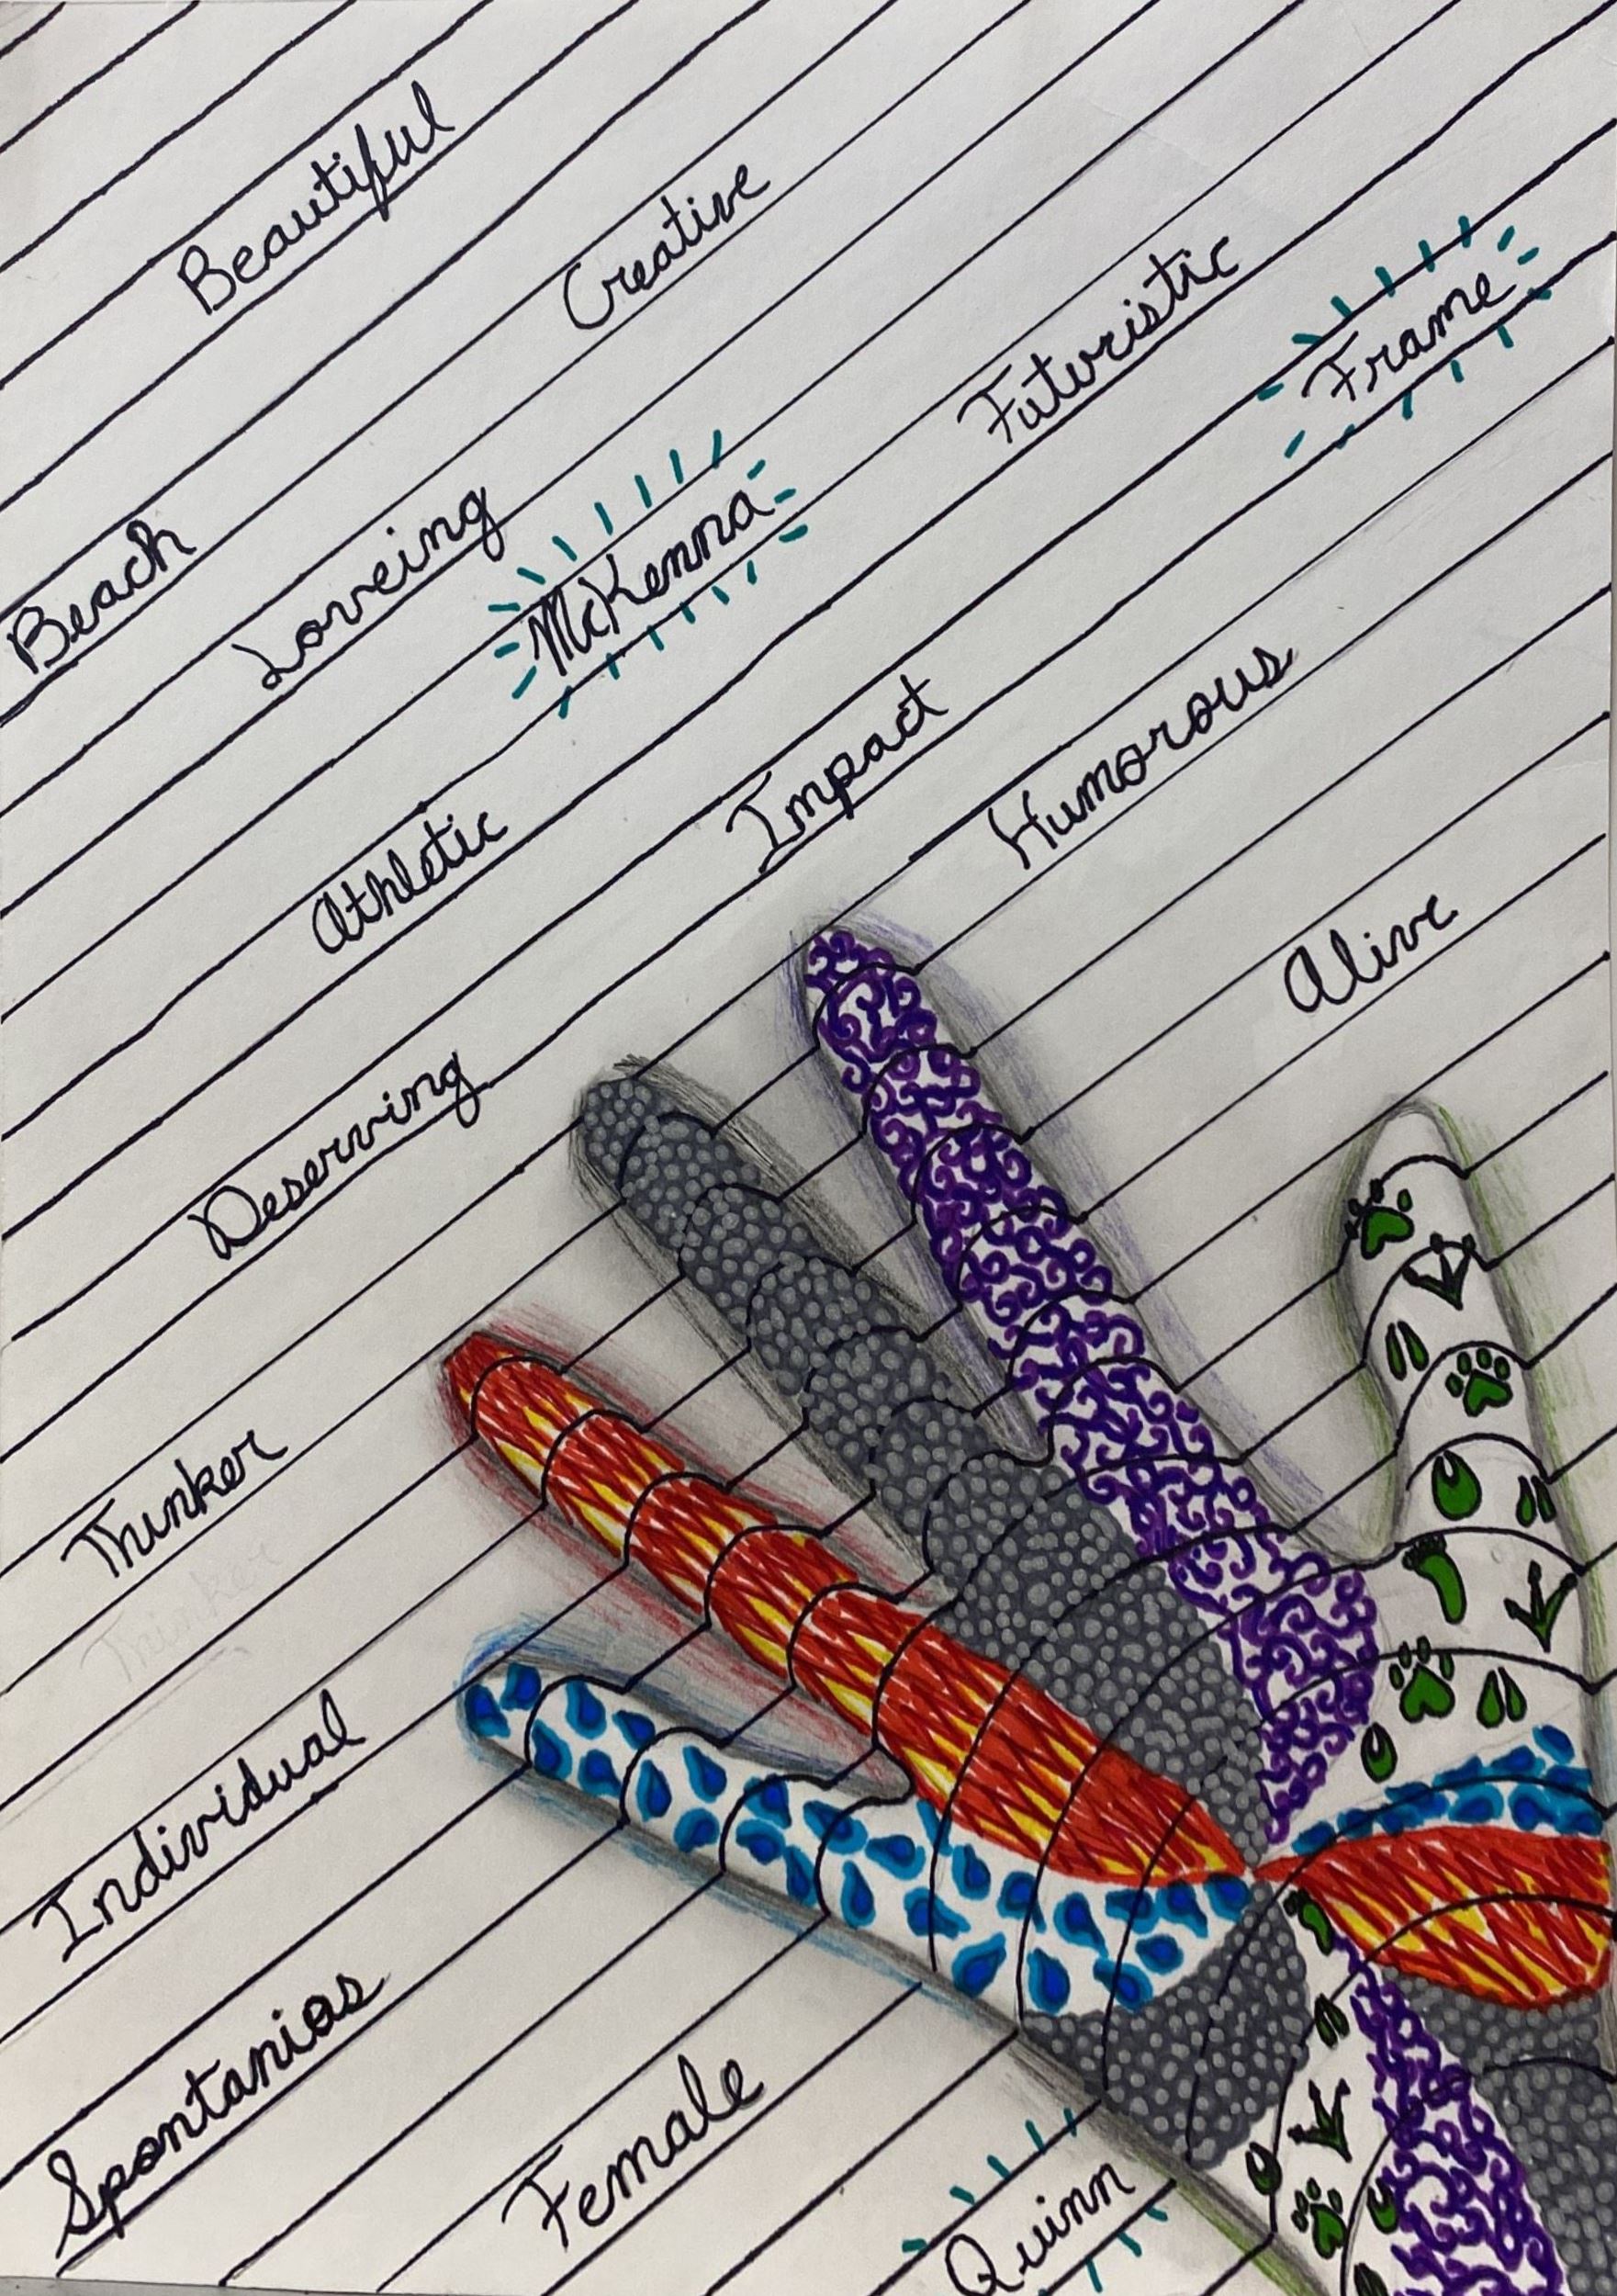 Beautiful
Creative
Futuristic
Frame
Beach
Loveing
McKenna
Athletic
Impact
Humorous
Alive
Deserving
Thinker
Thinker
Individual
Spontanios
Female
Quinn